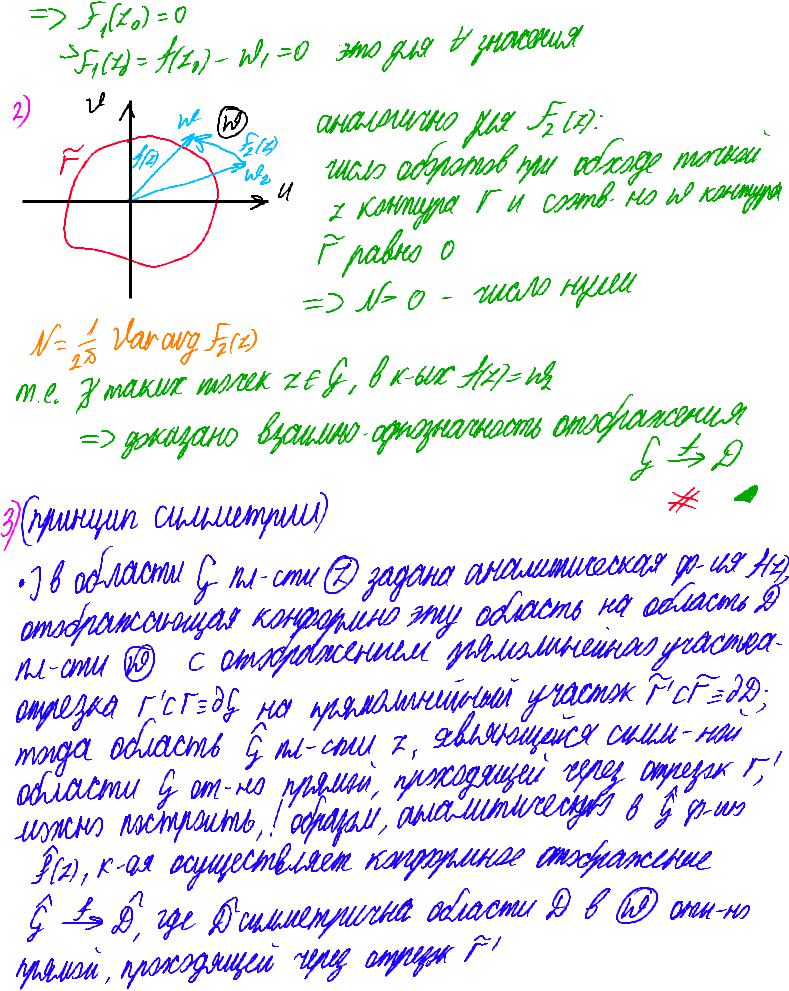 => F₁(z₀) = 0
→ F₁(z) = f(z₀) - w₁ = 0 это для ∀ значения
2)
v
w
(w)
Γ̃
f(z)
F₂(z)
w₂
u
аналогично для F₂(z):
число оборотов при обходе точкой
z контура Γ и соотв-но w контура
Γ̃ равно 0
=> N = 0 - число нулей
N = 1/2π Var arg F₂(z)
т.е. ∄ таких точек z ∈ G, в к-ых f(z) = w₂
=> доказано взаимно-однозначность отображения
G →ᶠ D
#
3) (принцип симметрии)
• ] в области G пл-сти (z) задана аналитическая ф-ия f(z),
отображающая конформно эту область на область D
пл-сти (w) с отображением прямолинейного участка-
отрезка Γ' ⊂ Γ ≡ ∂G на прямолинейный участок Γ̃' ⊂ Γ̃ ≡ ∂D;
тогда область Ĝ пл-сти z, являющейся симм-ной
области G от-но прямой, проходящей через отрезок Γ',
можно построить, ! образом, аналитическую в Ĝ ф-ию
f̂(z), к-ая осуществляет конформное отображение
Ĝ →ᶠ D̂, где D̂ симметрична области D в (w) отн-но
прямой, проходящей через отрезок Γ̃'